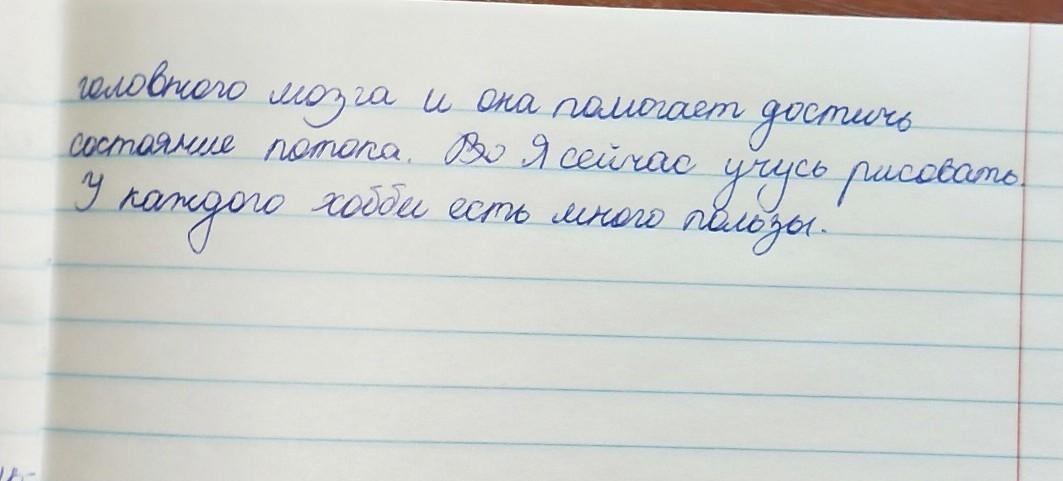 головного мозга и она помогает достичь
состояние потопа. Во Я сейчас учусь рисовать.
У каждого хобби есть много пользы.